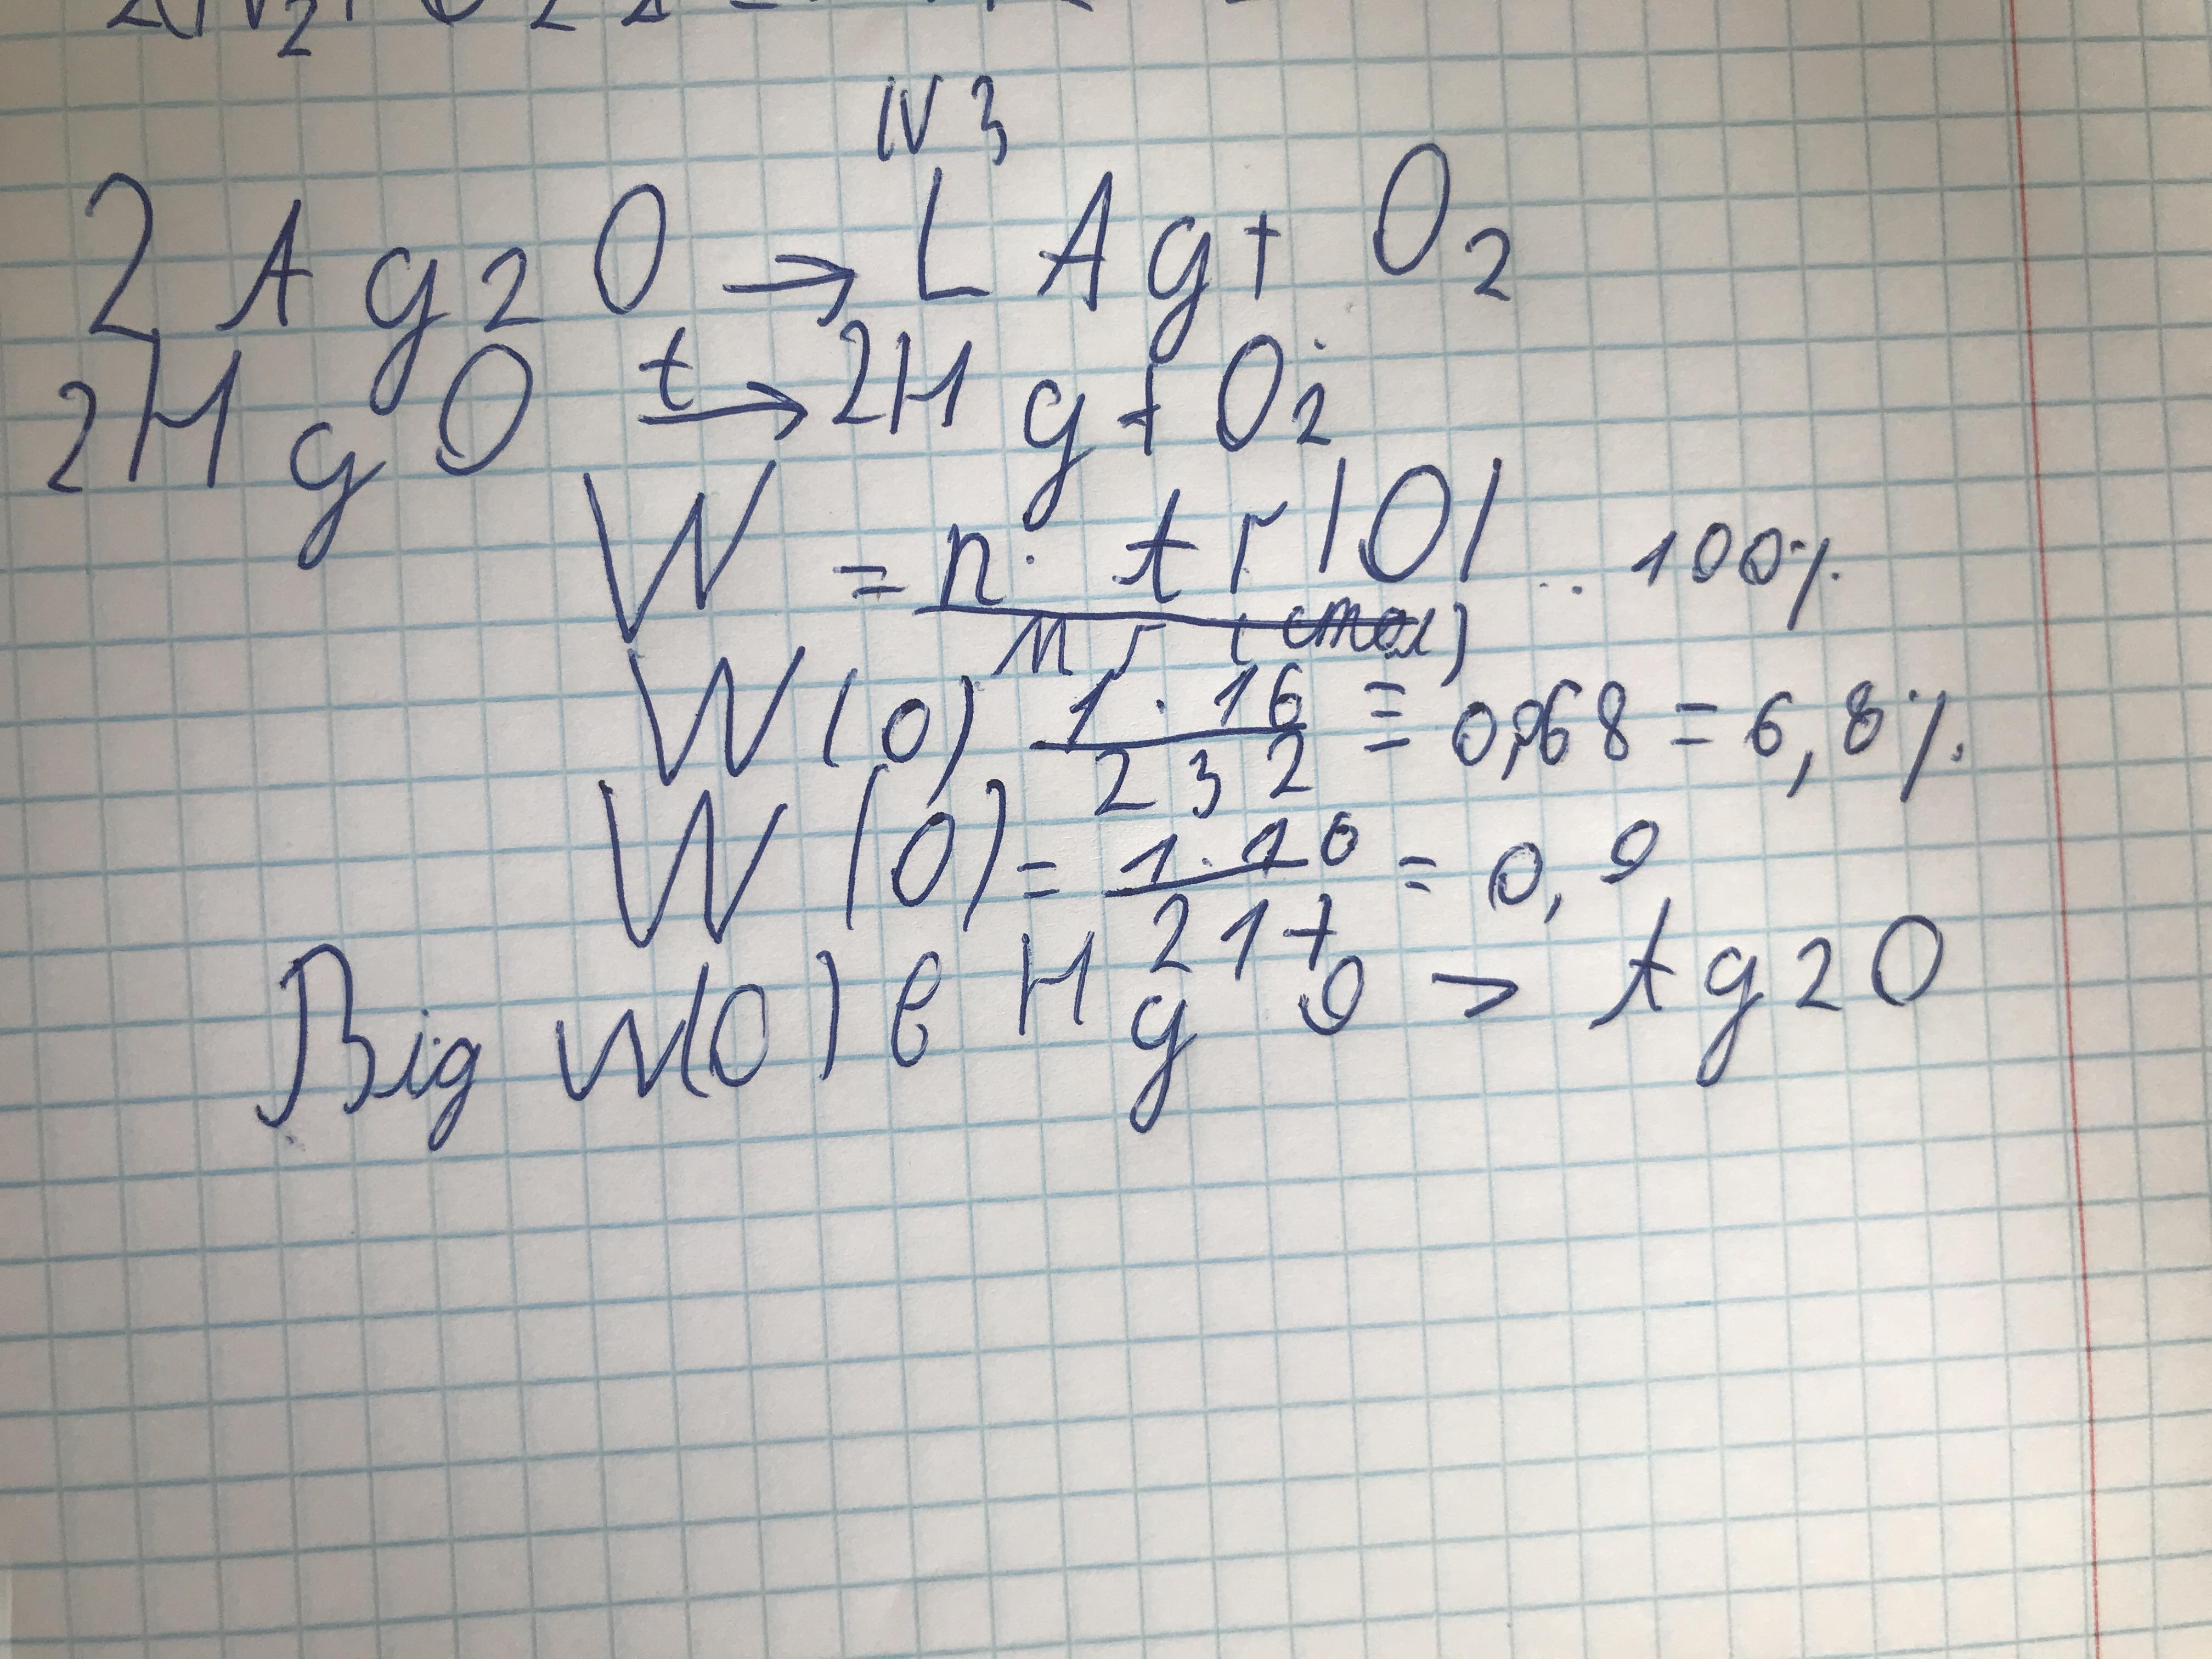 N 3
2 Ag2O → L Ag + O2
2HgO t→ 2Hg + O2
W = n · tr |O| / Mr (cmoл) · 100%
W(O) 1 · 16 / 232 = 0,068 = 6,8%
W(O) = 1 · 10 / 217 = 0,9
Big W(O) в HgO > Ag2O